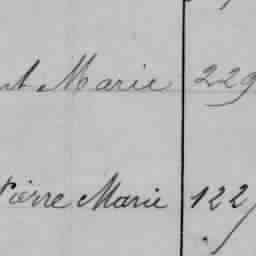 Marie 229
Pierre Marie 122